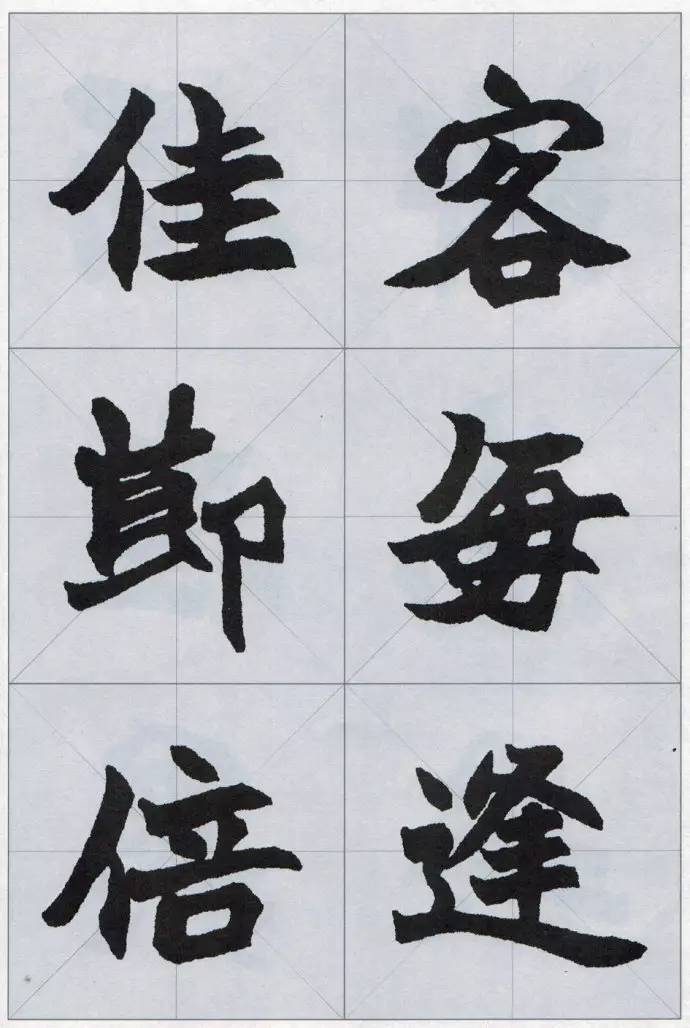 客每逢
佳莭倍